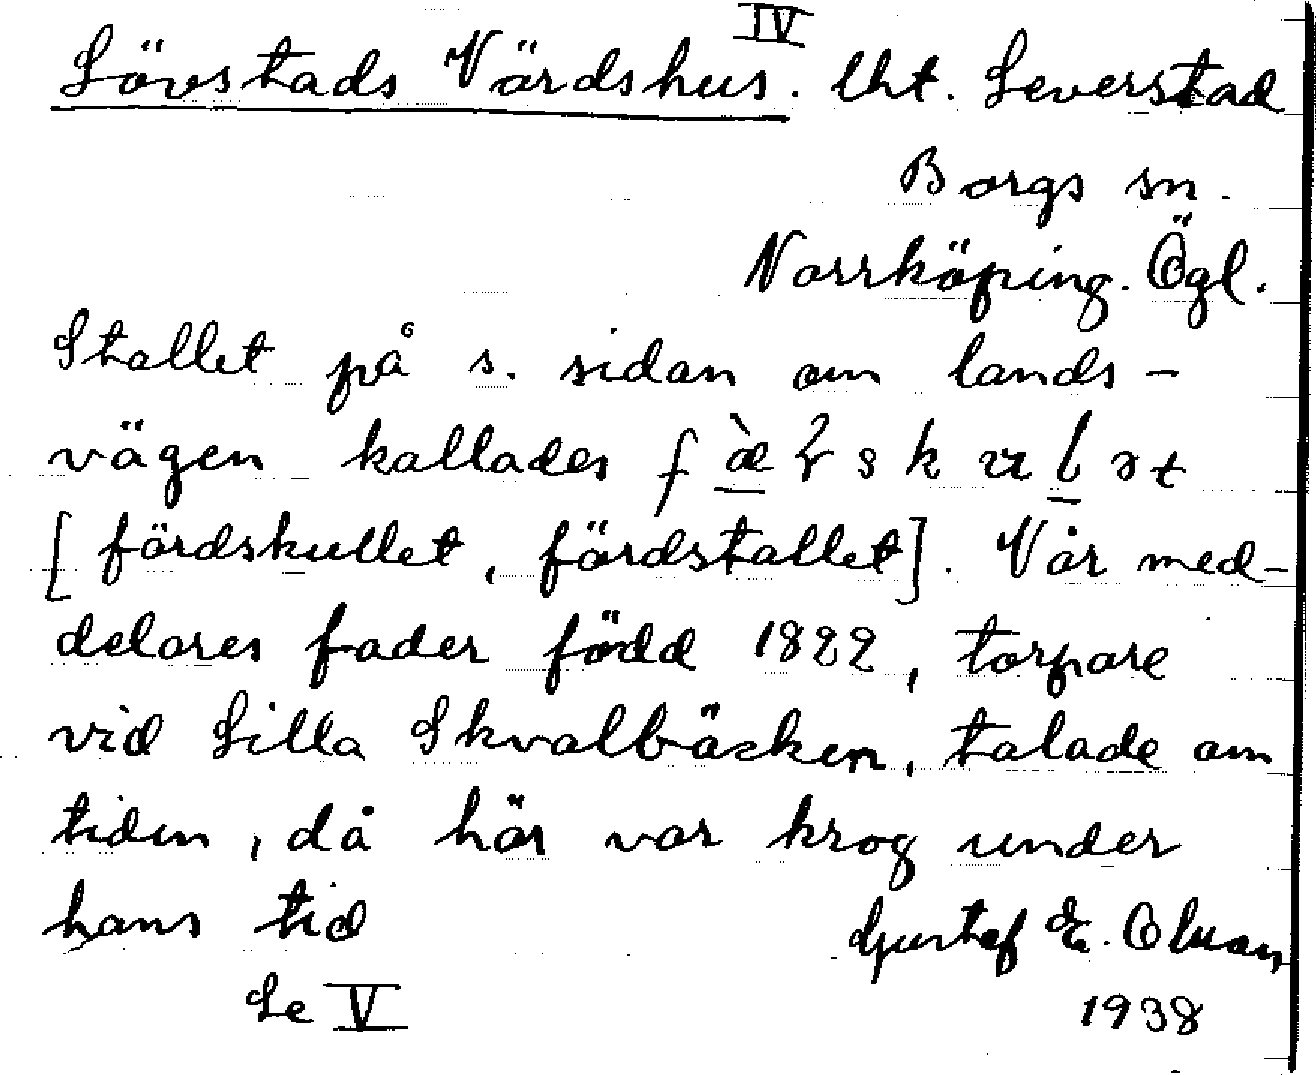 IV
Lövstads Värdshus. Uht. Leverstad
Borgs sn.
Norrköping. Ögl.
Stallet på s. sidan om lands-
vägen kallades
[färdskullet, färdstallet]. Vår med-
delares fader född 1822, torpare
vid Lilla Skvalbäcken, talade om
tiden, då här var krog under
hans tid
Gustaf E. Olson
Se V
1938